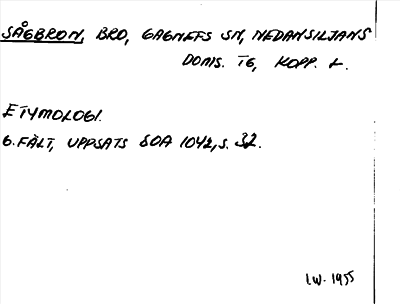 SÅGBRON, BRO, GAGNEFS SN, NEDANSILJANS
DOMS. TG, KOPP. L.
ETYMOLOGI.
G. FÄLT, UPPSATS SOA 1042, S. 32.
I.W. 1955